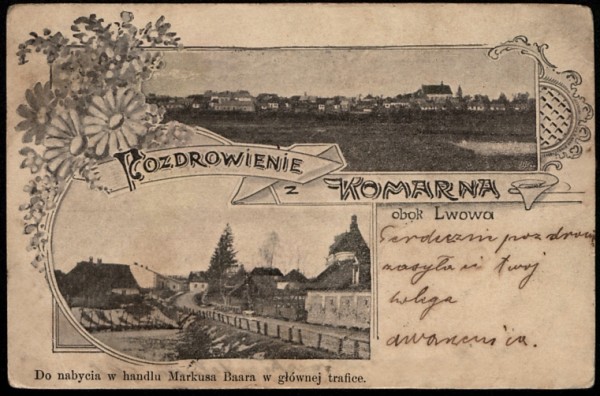 Pozdrowienie
z Komarna
obok Lwowa
Serdeczni pozdrowi
nasyła ci twój
kolega
Do nabycia w handlu Markusa Baara w głównej trafice.